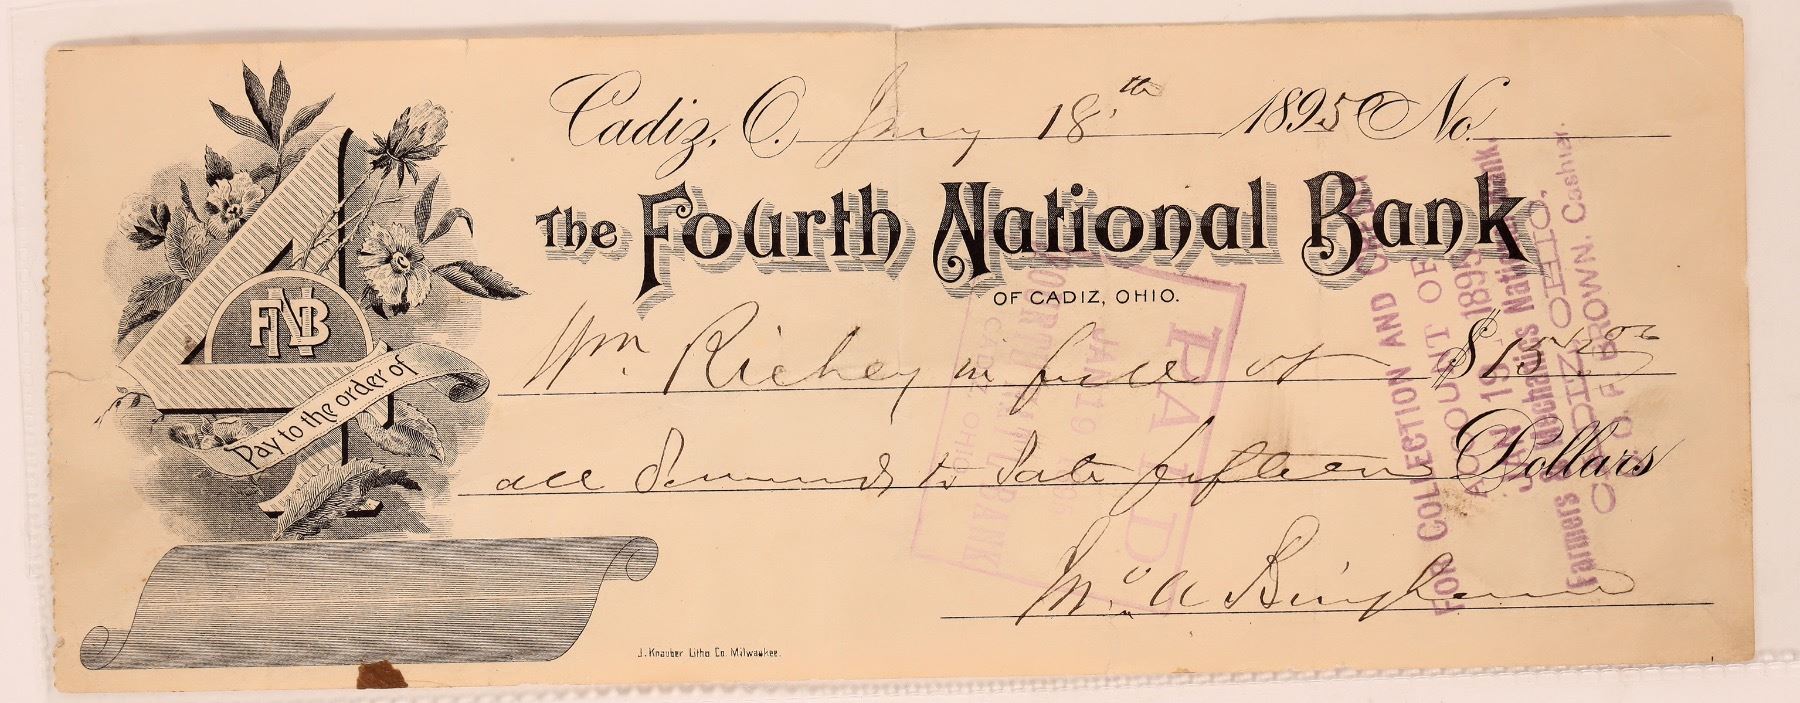 Cadiz, O. Jany 18th 1895 No.
The Fourth National Bank
OF CADIZ, OHIO.
FNB
Pay to the order of
Wm. Richey in full of $15
all demands to date fifteen Dollars
A Bingham
J. Knauber Litho Co. Milwaukee.
PAID
JAN 19 1895
FOURTH NATIONAL BANK
CADIZ, OHIO
FOR COLLECTION AND CREDIT
ACCOUNT OF
JAN 19 1895
Farmers & Mechanics National Bank,
CADIZ OHIO,
BROWN, Cashier.